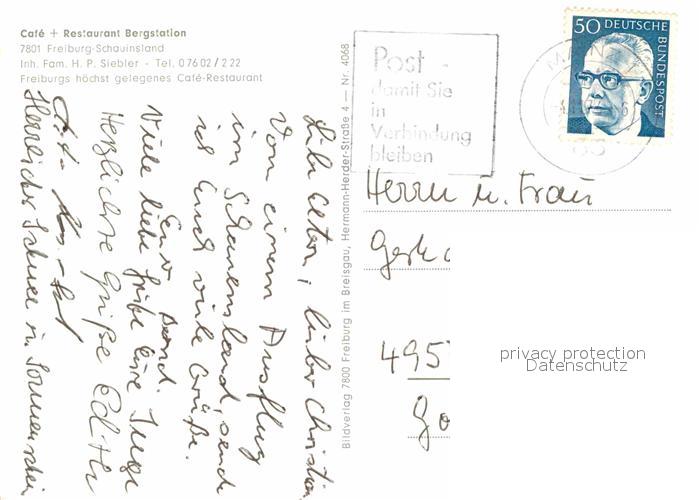 Café + Restaurant Bergstation
7801 Freiburg-Schauinsland
Inh. Fam. H. P. Siebler - Tel. 0 76 02 / 2 22
Freiburgs höchst gelegenes Café-Restaurant
Liebe Eltern, lieber Christian
Von einem Ausflug
im Schauinsland sende
ich Euch viele Grüße.
Euer Bernd.
Viele liebe Grüße Eure Inge
Herzlichste Grüße Edith
Herrlicher Schnee u. Sonnenschein
Bildverlag 7800 Freiburg im Breisgau, Hermann-Herder-Straße 4 — Nr. 4068
Post -
damit Sie
in
Verbindung
bleiben
MAIN
50 DEUTSCHE
BUNDESPOST
Herrn u. Frau
Gerh
495
Go
privacy protection
Datenschutz